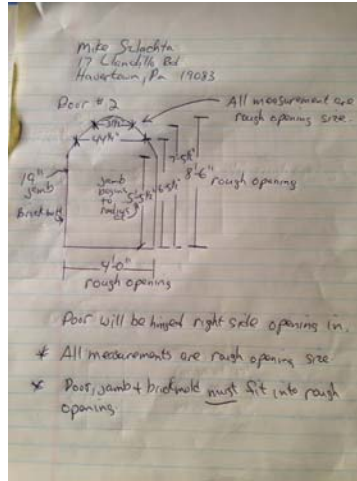 Mike Szlachta
17 Llandillo Rd
Havertown, Pa 19083
Door # 2
All measurement are
rough opening size.
44½"
19"
jamb
Brickmold
jamb
begins
to
radius
5'-5½"
6'-5½"
7'-5½"
8'-6"
rough opening
4'-0"
rough opening
Door will be hinged right side opening in.
* All measurements are rough opening size
* Door, jamb + brickmold must fit into rough
opening